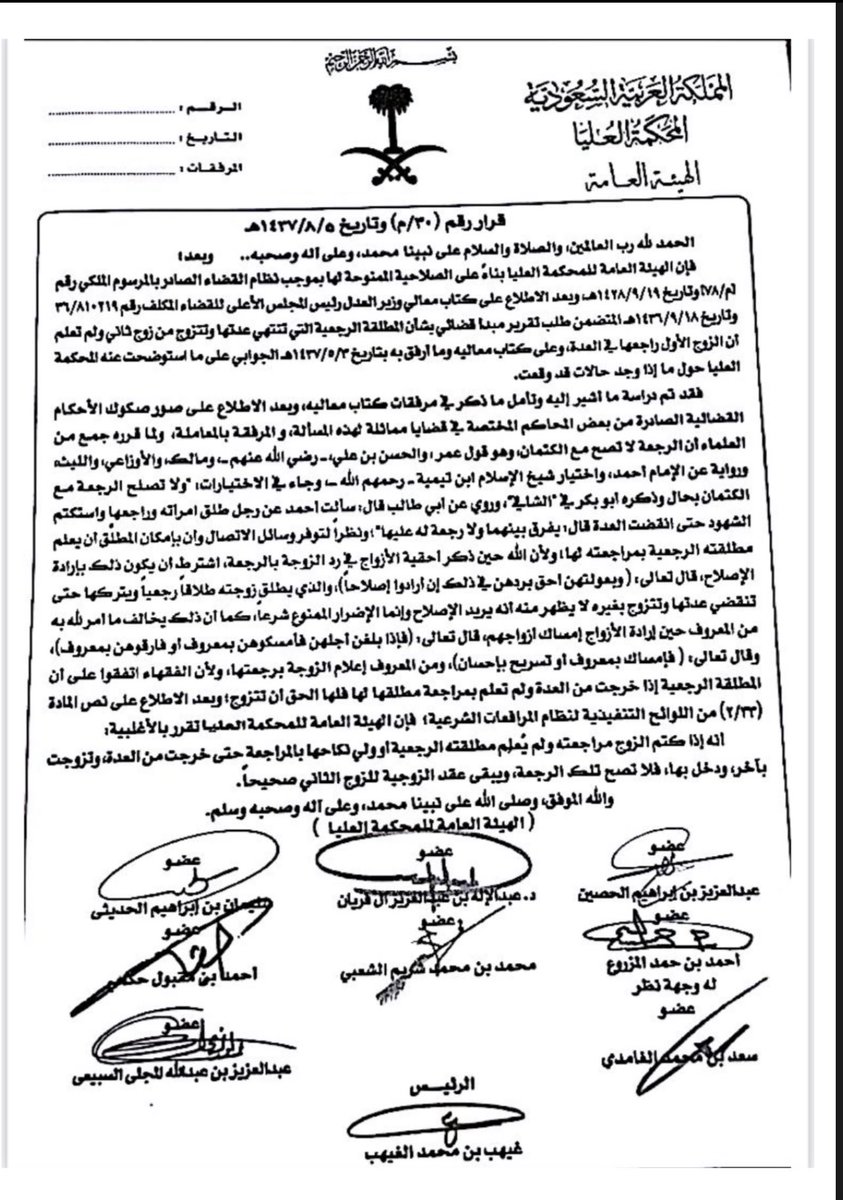 بسم الله الرحمن الرحيم
المملكة العربية السعودية
المحكمة العليا
الهيئة العامة
الرقم : ....................
التاريخ : ....................
المرفقات : ....................
قرار رقم (٣٠/م) وتاريخ ١٤٣٧/٨/٥هـ
الحمد لله رب العالمين، والصلاة والسلام على نبينا محمد، وعلى آله وصحبه.. وبعد؛
فإن الهيئة العامة للمحكمة العليا بناءً على الصلاحية الممنوحة لها بموجب نظام القضاء الصادر بالمرسوم الملكي رقم
(م/٧٨) وتاريخ ١٤٢٨/٩/١٩هـ، وبعد الاطلاع على كتاب معالي وزير العدل رئيس المجلس الأعلى للقضاء المكلف رقم ٣٦/٨١٠٢١٩
وتاريخ ١٤٣٦/٩/١٨هـ المتضمن طلب تقرير مبدأ قضائي بشأن المطلقة الرجعية التي تنتهي عدتها وتتزوج من زوج ثاني ولم تعلم
أن الزوج الأول راجعها في العدة، وعلى كتاب معاليه وما أرفق به بتاريخ ١٤٣٧/٥/٣هـ الجوابي على ما استوضحت عنه المحكمة
العليا حول ما إذا وجد حالات قد وقعت.
فقد تم دراسة ما أشير إليه وتأمل ما ذكر في مرفقات كتاب معاليه، وبعد الاطلاع على صور صكوك الأحكام
القضائية الصادرة من بعض المحاكم المختصة في قضايا مماثلة لهذه المسألة، و المرفقة بالمعاملة، ولما قرره جمع من
العلماء أن الرجعة لا تصح مع الكتمان، وهو قول عمر، والحسن بن علي،ـ رضي الله عنهم ـ، ومالك، والأوزاعي، والليث،
ورواية عن الإمام أحمد، واختيار شيخ الإسلام ابن تيمية ـ رحمهم الله ـ، وجاء في الاختيارات: "ولا تصلح الرجعة مع
الكتمان بحال وذكره أبو بكر في "الشافي"، وروي عن أبي طالب قال: سألت أحمد عن رجل طلق امرأته وراجعها واستكتم
الشهود حتى انقضت العدة قال: يفرق بينهما ولا رجعة له عليها"؛ ونظراً لتوفر وسائل الاتصال وإن بإمكان المطلق أن يعلم
مطلقته الرجعية بمراجعته لها؛ ولأن الله حين ذكر أحقية الأزواج في رد الزوجة بالرجعة، اشترط أن يكون ذلك بإرادة
الإصلاح، قال تعالى: ( وبعولتهن أحق بردهن في ذلك إن أرادوا إصلاحاً)، والذي يطلق زوجته طلاقاً رجعياً ويتركها حتى
تنقضي عدتها وتتزوج بغيره لا يظهر منه أنه يريد الإصلاح وإنما الإضرار الممنوع شرعاً، كما أن ذلك يخالف ما أمر لله به
من المعروف حين إرادة الأزواج إمساك أزواجهم، قال تعالى: (فإذا بلغن أجلهن فأمسكوهن بمعروف أو فارقوهن بمعروف)،
وقال تعالى: ( فإمساك بمعروف أو تسريح بإحسان)، ومن المعروف إعلام الزوجة برجعتها، ولأن الفقهاء اتفقوا على أن
المطلقة الرجعية إذا خرجت من العدة ولم تعلم بمراجعة مطلقها لها فلها الحق أن تتزوج؛ وبعد الاطلاع على نص المادة
(٢/٣٣) من اللوائح التنفيذية لنظام المرافعات الشرعية؛ فإن الهيئة العامة للمحكمة العليا تقرر بالأغلبية:
أنه إذا كتم الزوج مراجعته ولم يُعلِم مطلقته الرجعية أو ولي نكاحها بالمراجعة حتى خرجت من العدة، وتزوجت
بآخر، ودخل بها، فلا تصح تلك الرجعة، ويبقى عقد الزوجية للزوج الثاني صحيحاً.
والله الموفق، وصلى الله على نبينا محمد، وعلى آله وصحبه وسلم.
( الهيئة العامة للمحكمة العليا )
عضو
عبدالعزيز بن إبراهيم الحصين
عضو
د. عبدالإله بن عبدالعزيز آل فريان
عضو
سليمان بن إبراهيم الحديثي
عضو
أحمد بن حمد المزروع
له وجهة نظر
عضو
محمد بن محمد شريم الشعبي
عضو
أحمد بن مقبول حكمي
عضو
سعد بن محمد الغامدي
عضو
عبدالعزيز بن عبدالله المجلي السبيعي
الرئيس
غيهب بن محمد الغيهب